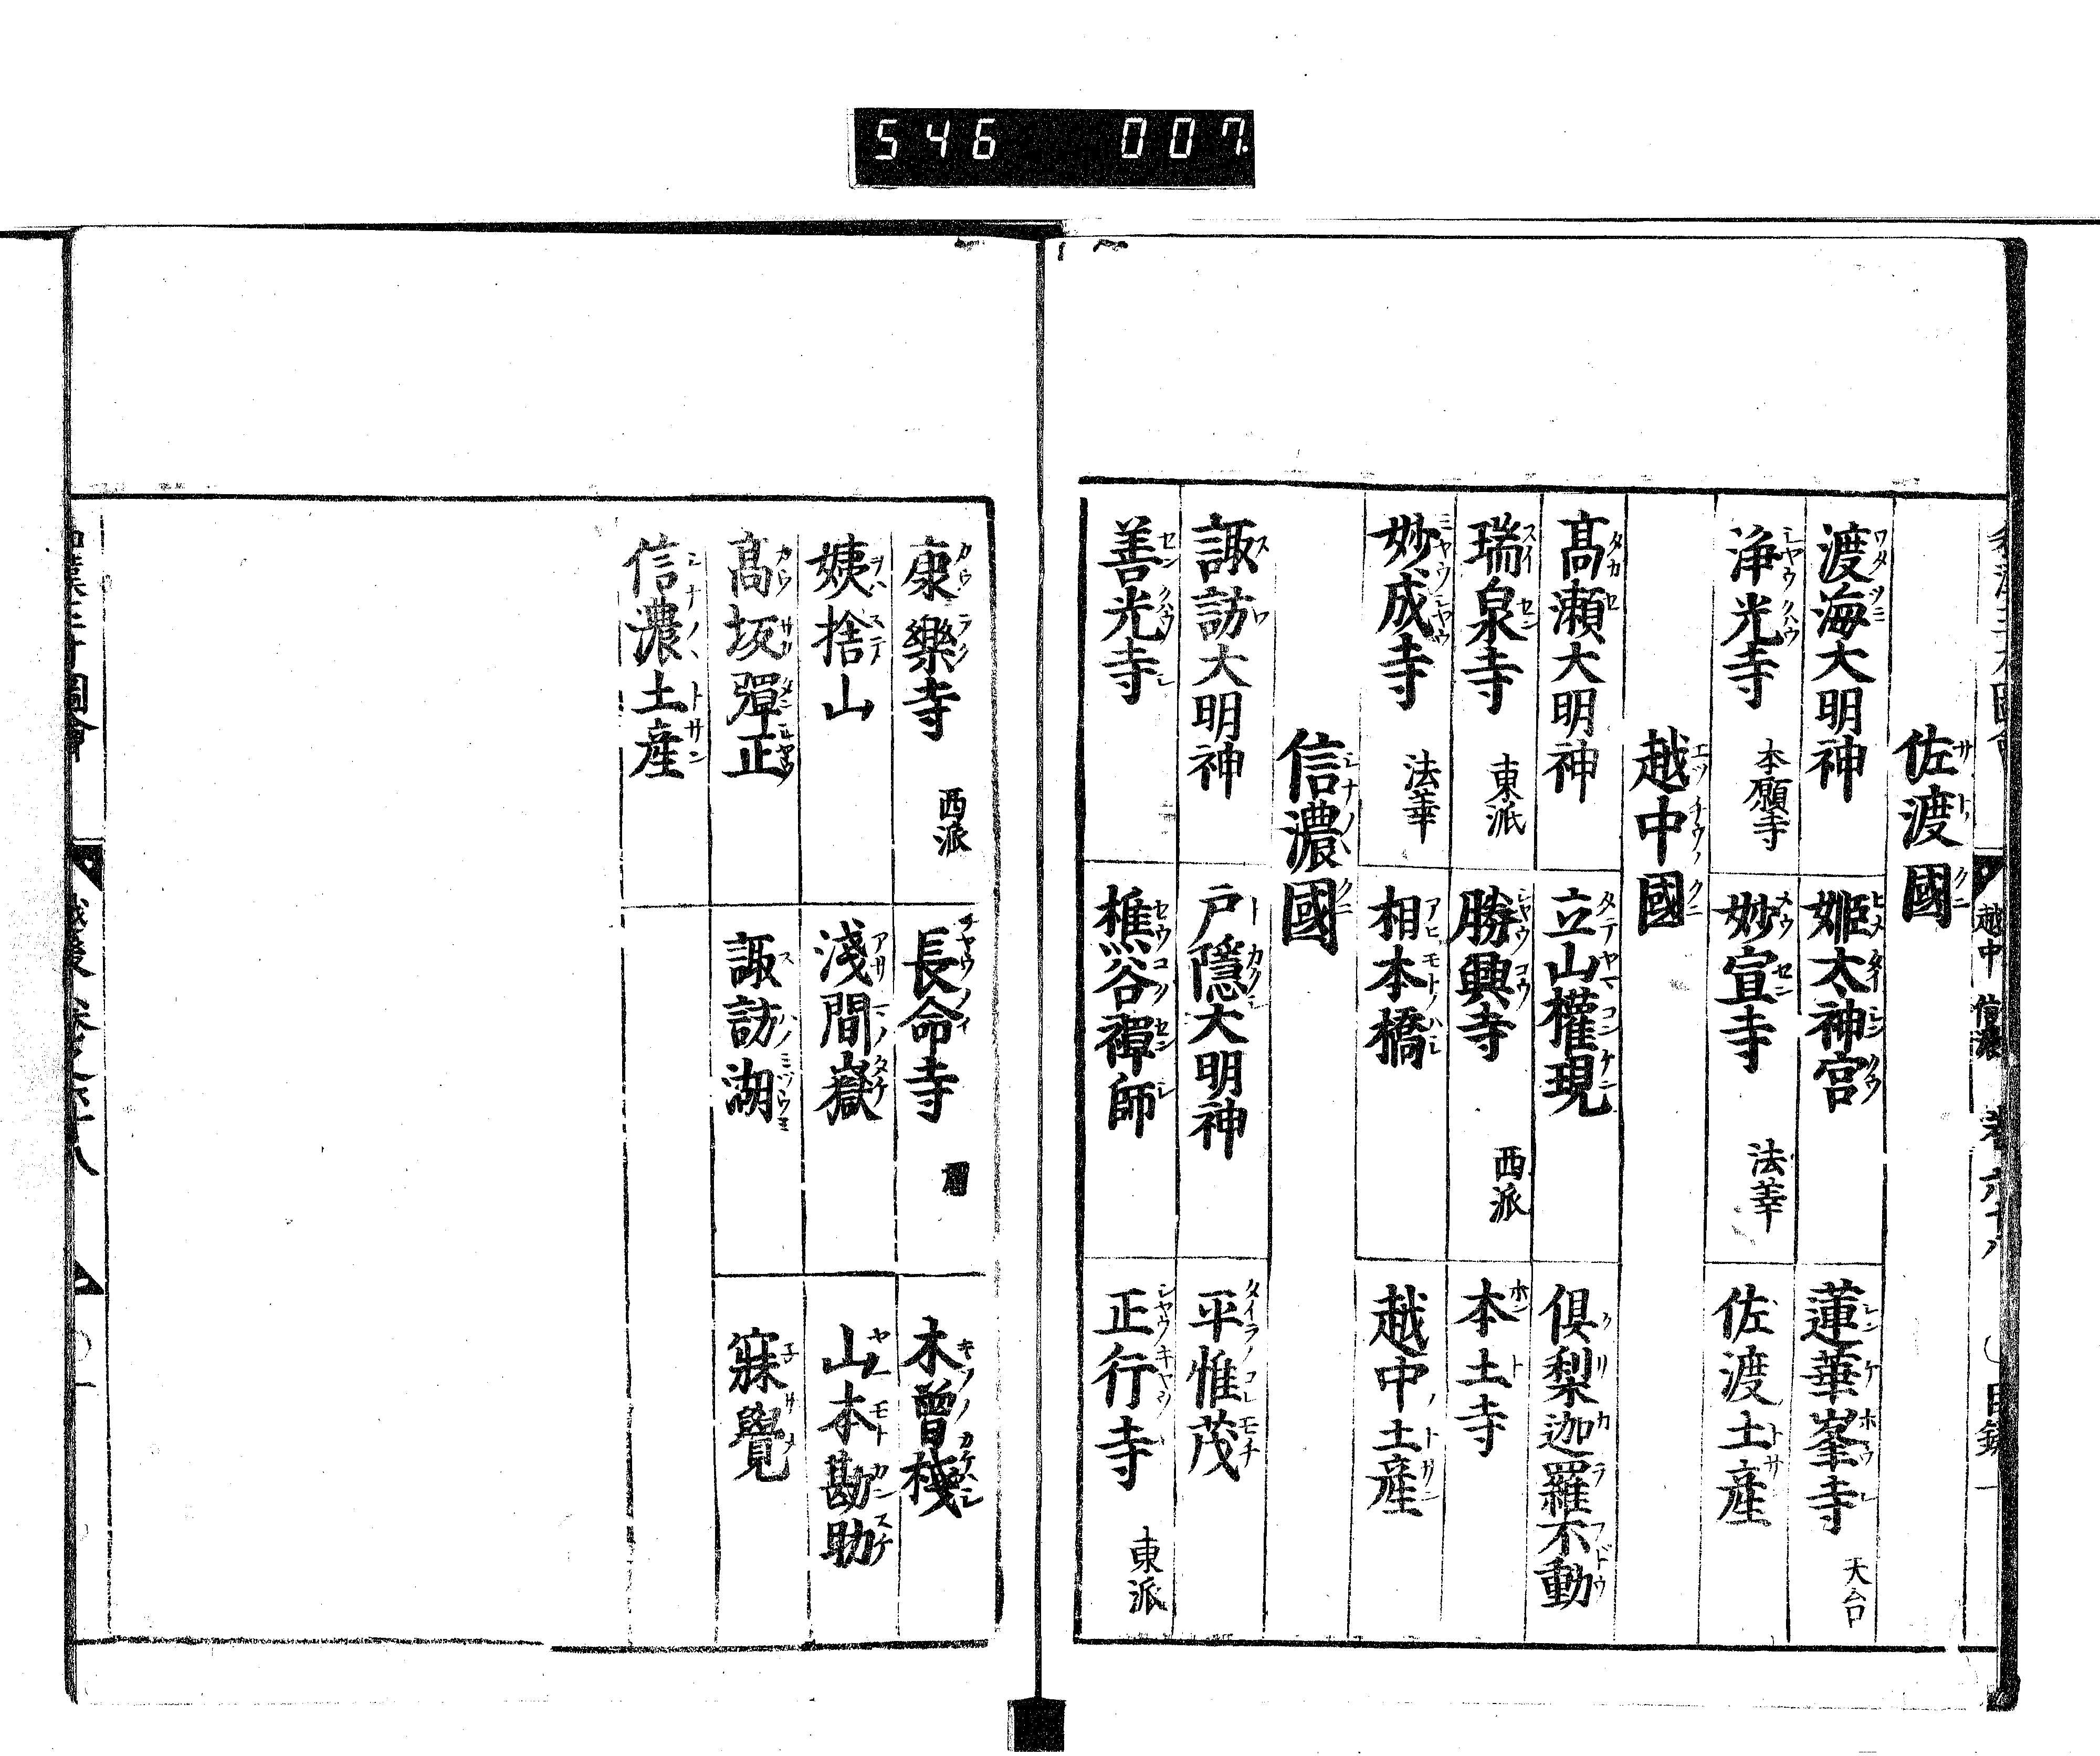 546 007.
越中 信濃 卷六十八 目録 一
佐渡國
渡海大明神 姫太神宮 蓮華峯寺 天台
浄光寺 本願寺 妙宣寺 法華 佐渡土産
越中國
髙瀬大明神 立山權現 俱梨迦羅不動
瑞泉寺 東派 勝興寺 西派 本土寺
妙成寺 法華 相本橋 越中土産
信濃國
諏訪大明神 戸隱大明神 平惟茂
善光寺 樵谷禪師 正行寺 東派
康樂寺 西派 長命寺 木曾棧
姨捨山 淺間嶽 山本勘助
髙坂彈正 諏訪湖 寐覺
信濃土産
越後 卷之六十八